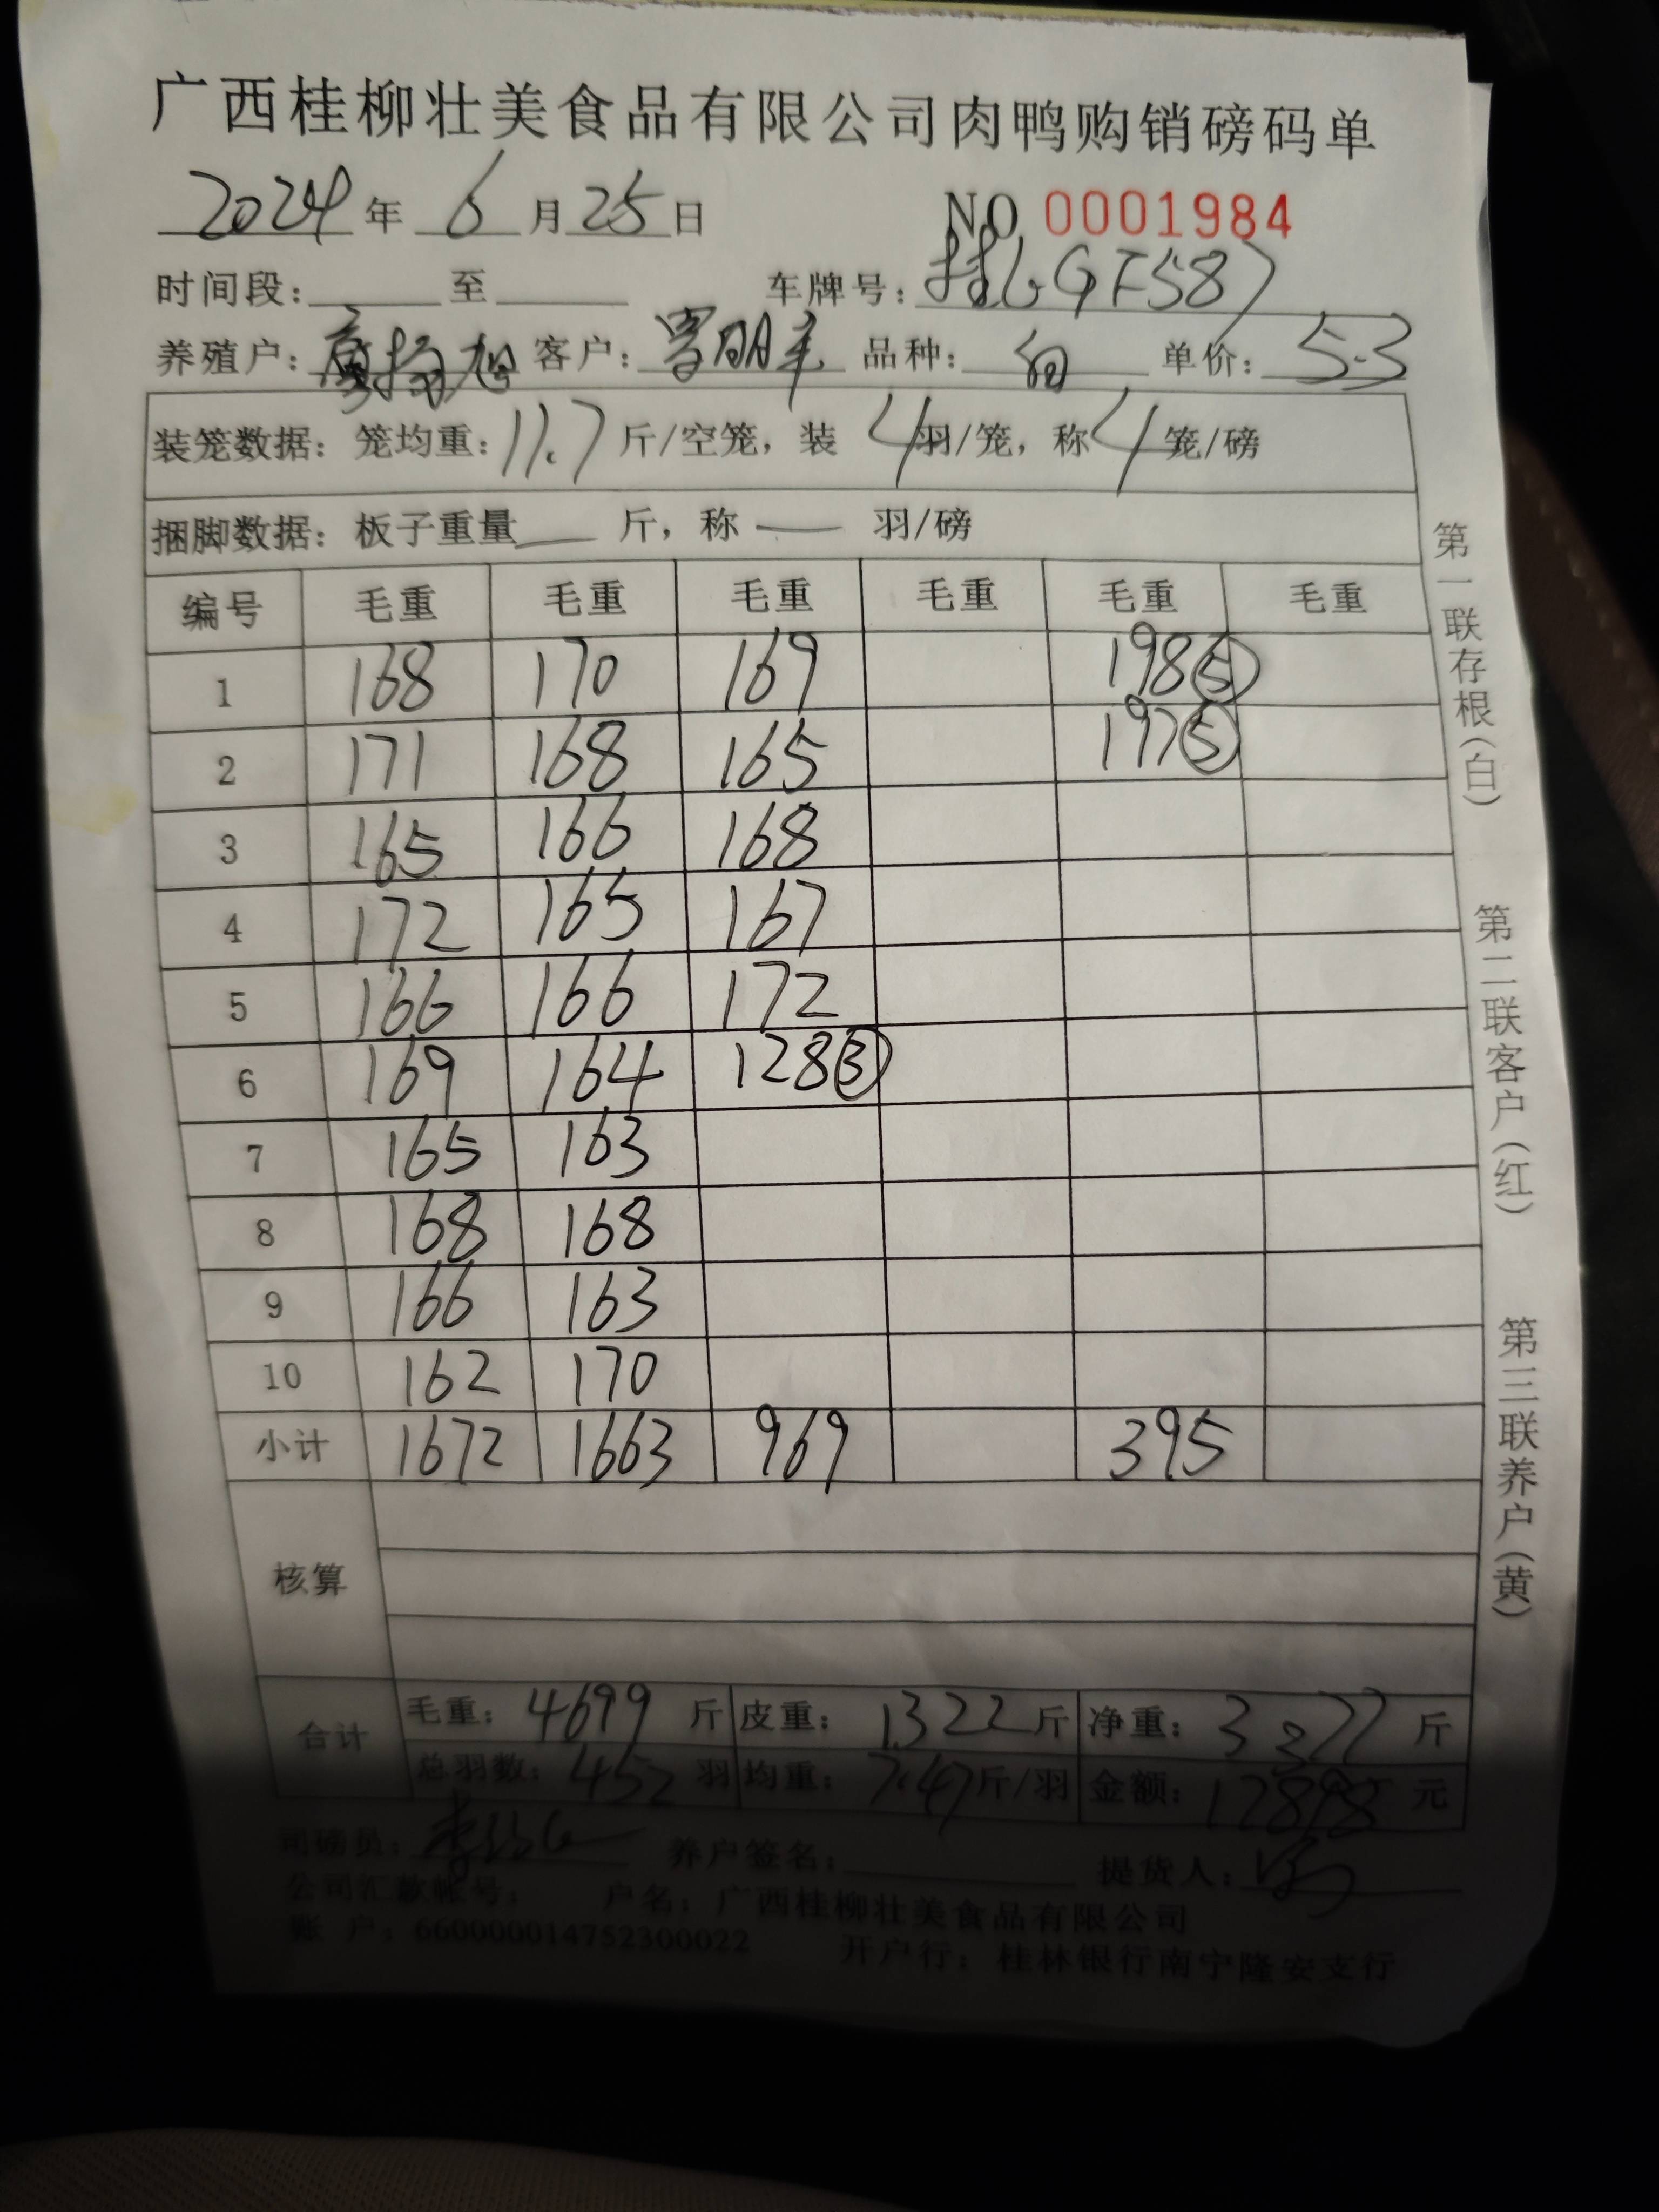 广西桂柳壮美食品有限公司肉鸭购销磅码单
2024年 6月25日 NO 0001984
时间段: 至 车牌号: 桂LGF587
养殖户: 客户: 品种: 单价: 5.3
装笼数据: 笼均重: 11.7 斤/空笼, 装 4 羽/笼, 称 4 笼/磅
捆脚数据: 板子重量 — 斤, 称 — 羽/磅
编号 毛重 毛重 毛重 毛重 毛重 毛重
1 168 170 169 198⑤
2 171 168 165 197⑤
3 165 166 168
4 172 165 167
5 166 166 172
6 169 164 128③
7 165 163
8 168 168
9 166 163
10 162 170
小计 1672 1663 969 395
核算
合计 毛重: 4699 斤 皮重: 1322 斤 净重: 3377 斤
总羽数: 452 羽 均重: 7.47 斤/羽 金额: 元
司磅员: 养户签名: 提货人:
公司汇款帐号: 户名: 广西桂柳壮美食品有限公司
账 户: 660000014752300022 开户行: 桂林银行南宁隆安支行
第一联存根(白) 第二联客户(红) 第三联养户(黄)